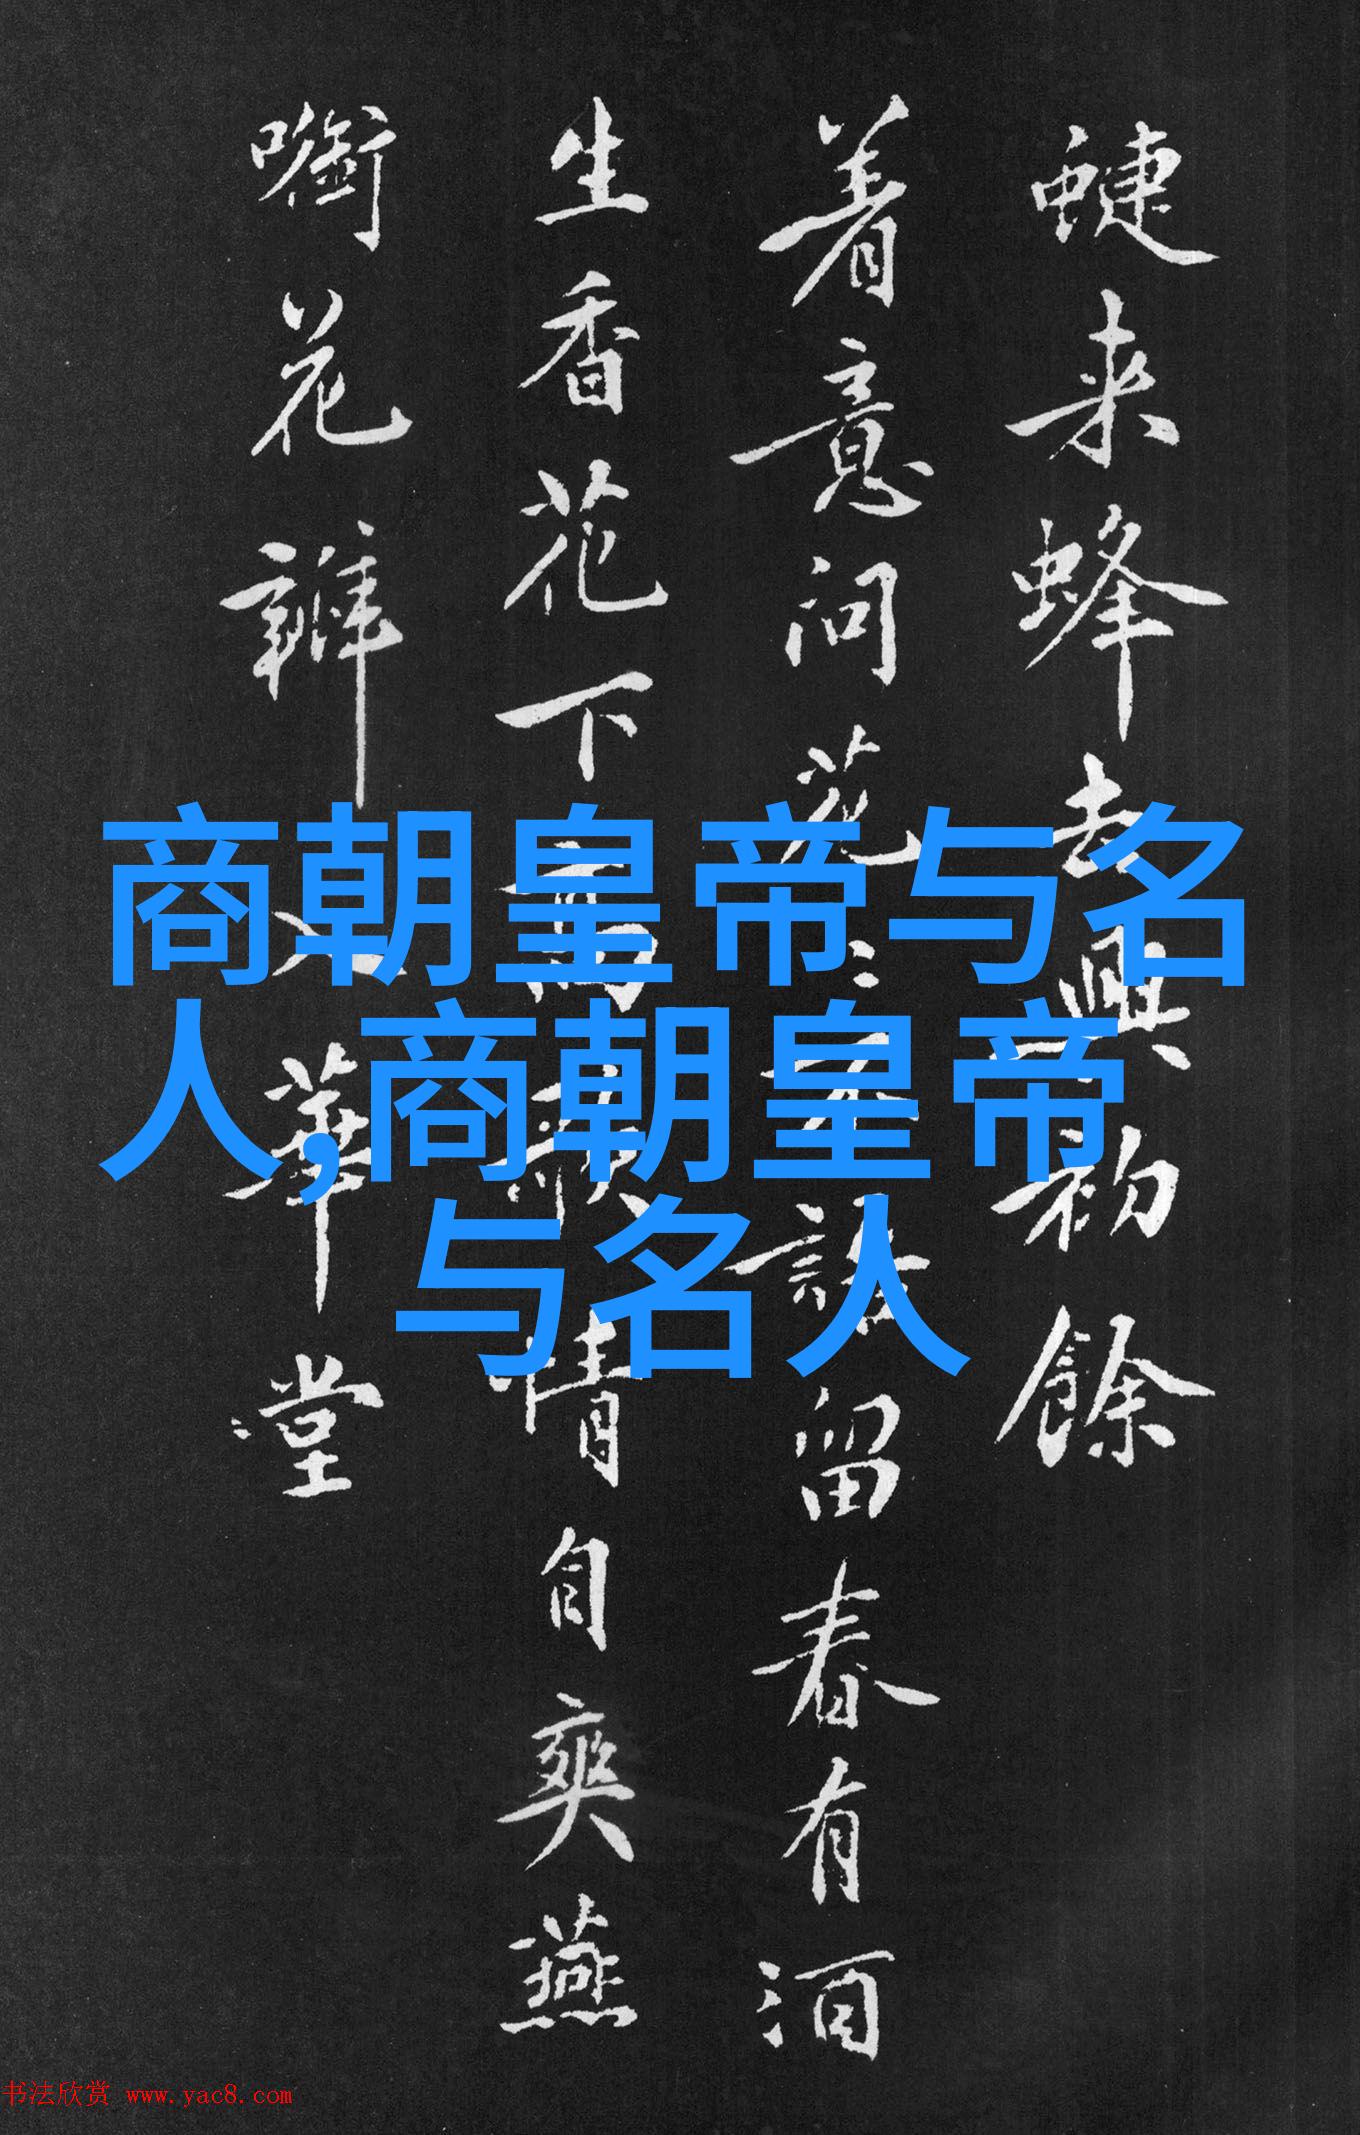 蜨来蜂去興初餘
着意问花花不語留春有酒
生香花下高歌情自爽燕
啣花瓣入華堂
商朝皇帝与名
人,商朝皇帝
与名人
书法欣赏 www.yac8.com